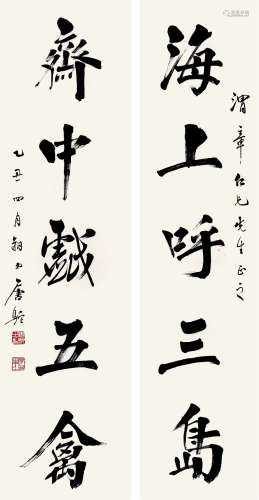 渭章仁兄先生正之
海上呼三島
齊中戲五禽
乙丑四月 唐駝